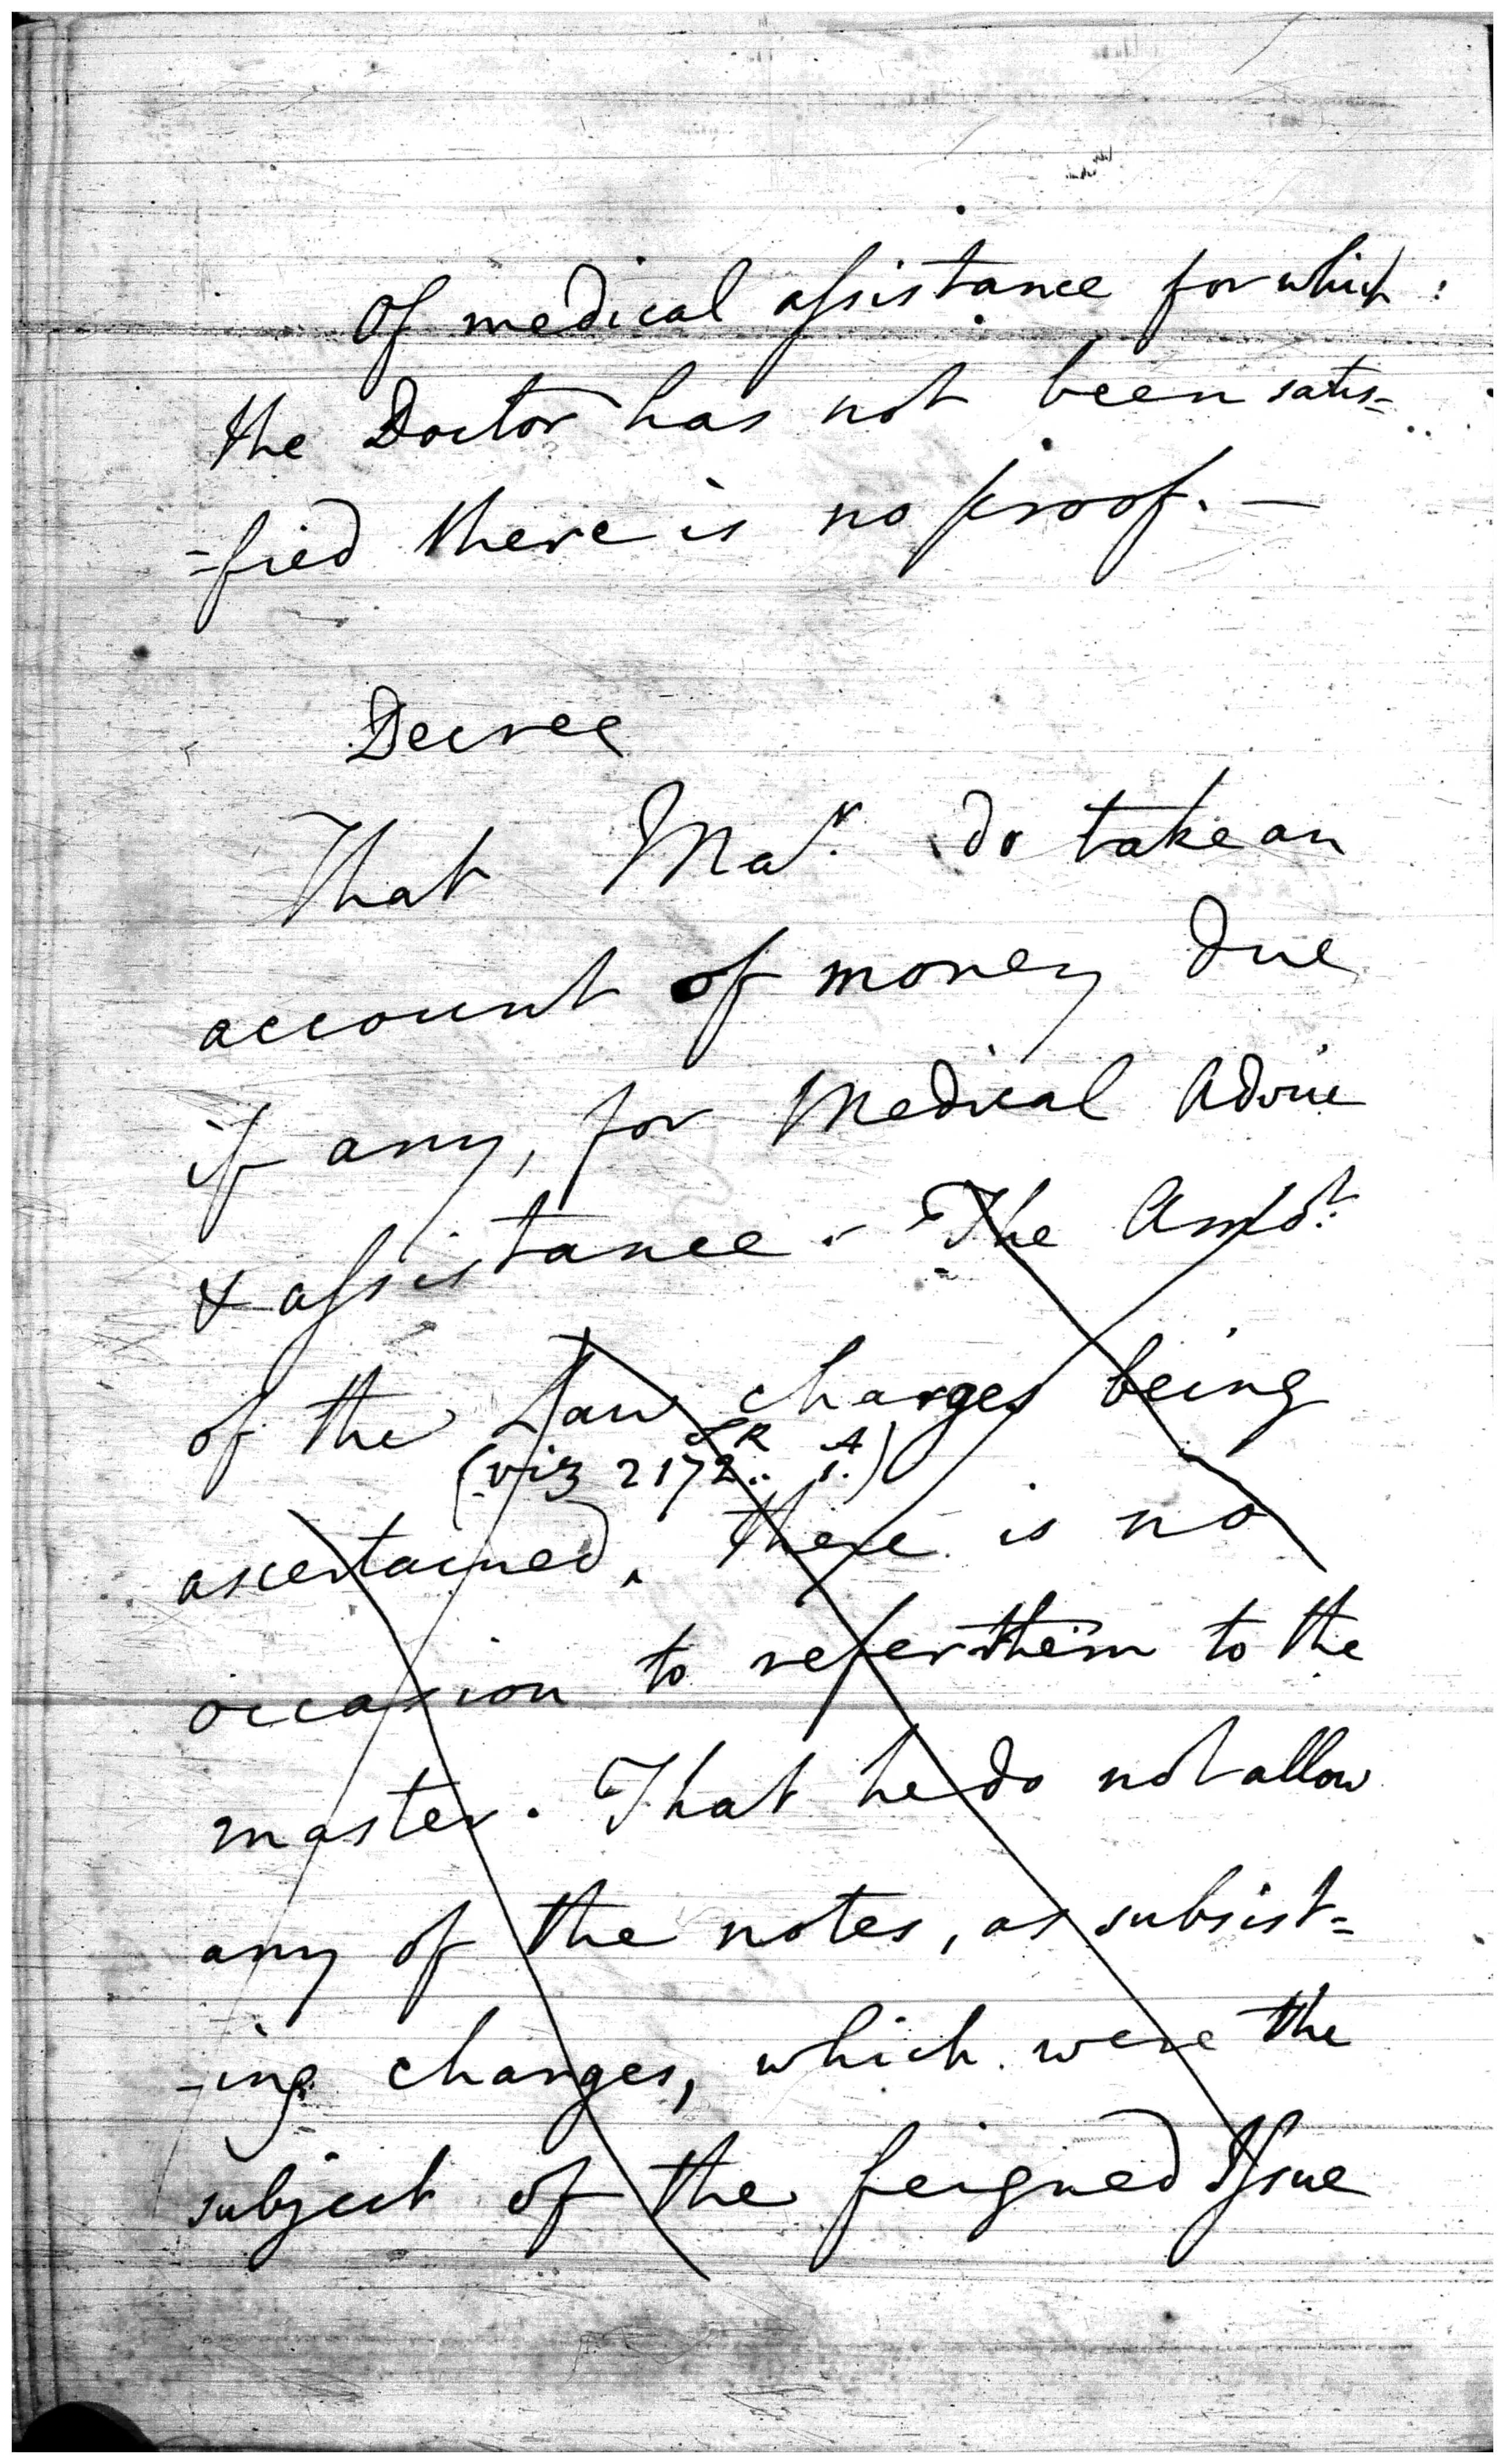 Of medical assistance for which
the Doctor has not been satis=
=fied there is no proof. —
Decree
That Mar. do take an
account of money due
if any, for Medical Advice
& assistance. The Amot.
of the Law charges being
(viz 2172.. 1.)
ascertained, there is no
occasion to refer them to the
master. That he do not allow
any of the notes, as subsist=
-ing charges, which were the
subject of the feigned Issue